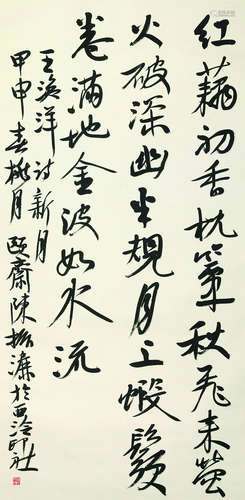 红藕初香枕簟秋飞来萤
火破深幽半规月上虾须
卷满地金波如水流
王渔洋诗新月
甲申春桃月颐斋陈振濂於西泠印社